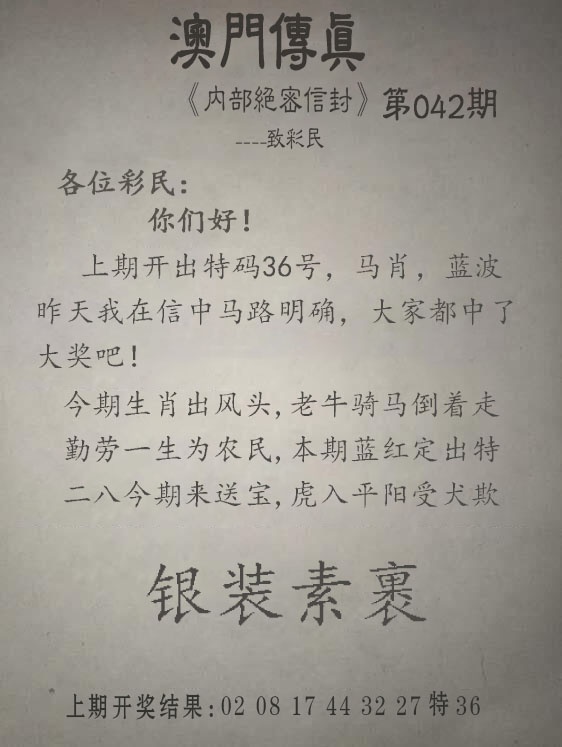 澳門傳眞
《内部絕密信封》第042期
----致彩民
各位彩民:
你们好!
上期开出特码36号，马肖，蓝波
昨天我在信中马路明确，大家都中了
大奖吧!
今期生肖出风头,老牛骑马倒着走
勤劳一生为农民,本期蓝红定出特
二八今期来送宝,虎入平阳受犬欺
银装素裹
上期开奖结果:02 08 17 44 32 27特36